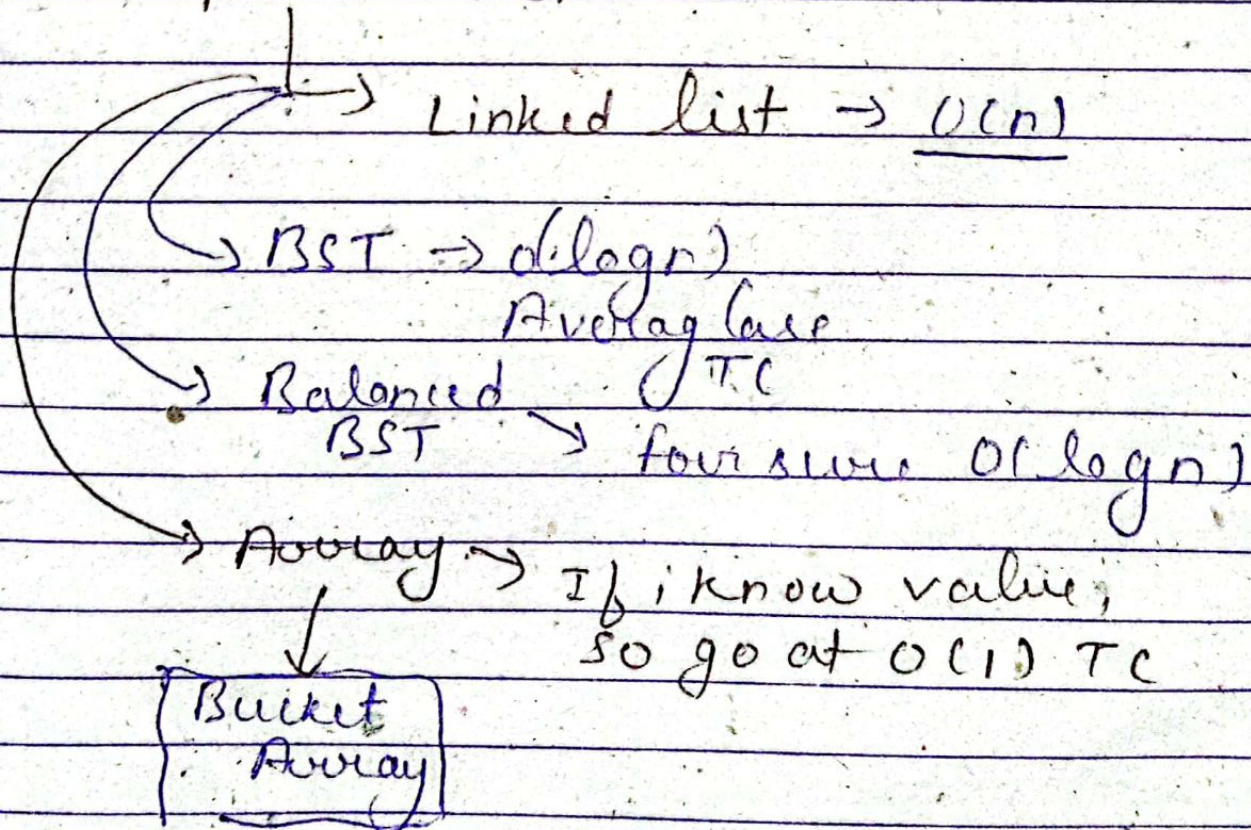 → Linked list → O(n)
→ BST → O(logn)
Averag Case
TC
→ Balanced
BST → for sure O(logn)
→ Array → If i know value,
so go at O(1) TC
Bucket
Array